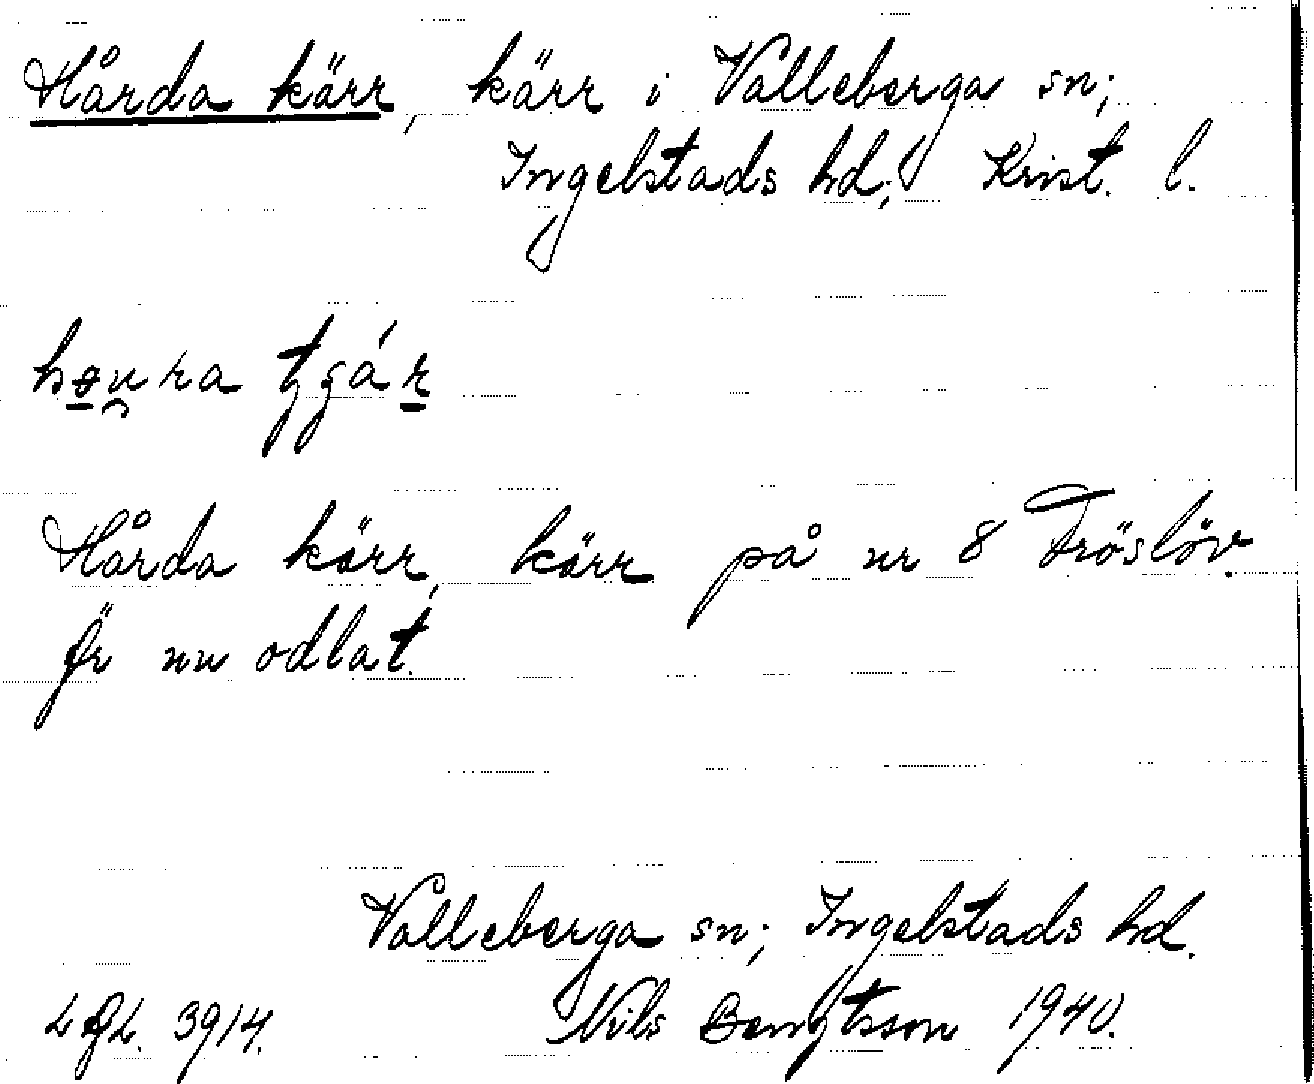 Hårda kärr, kärr i Valleberga sn;
Ingelstads hd; Krist. l.
Hårda kärr, kärr på nr 8 Fröslöv.
Är nu odlat.
Valleberga sn; Ingelstads hd.
3914. Nils Bengtsson 1940.